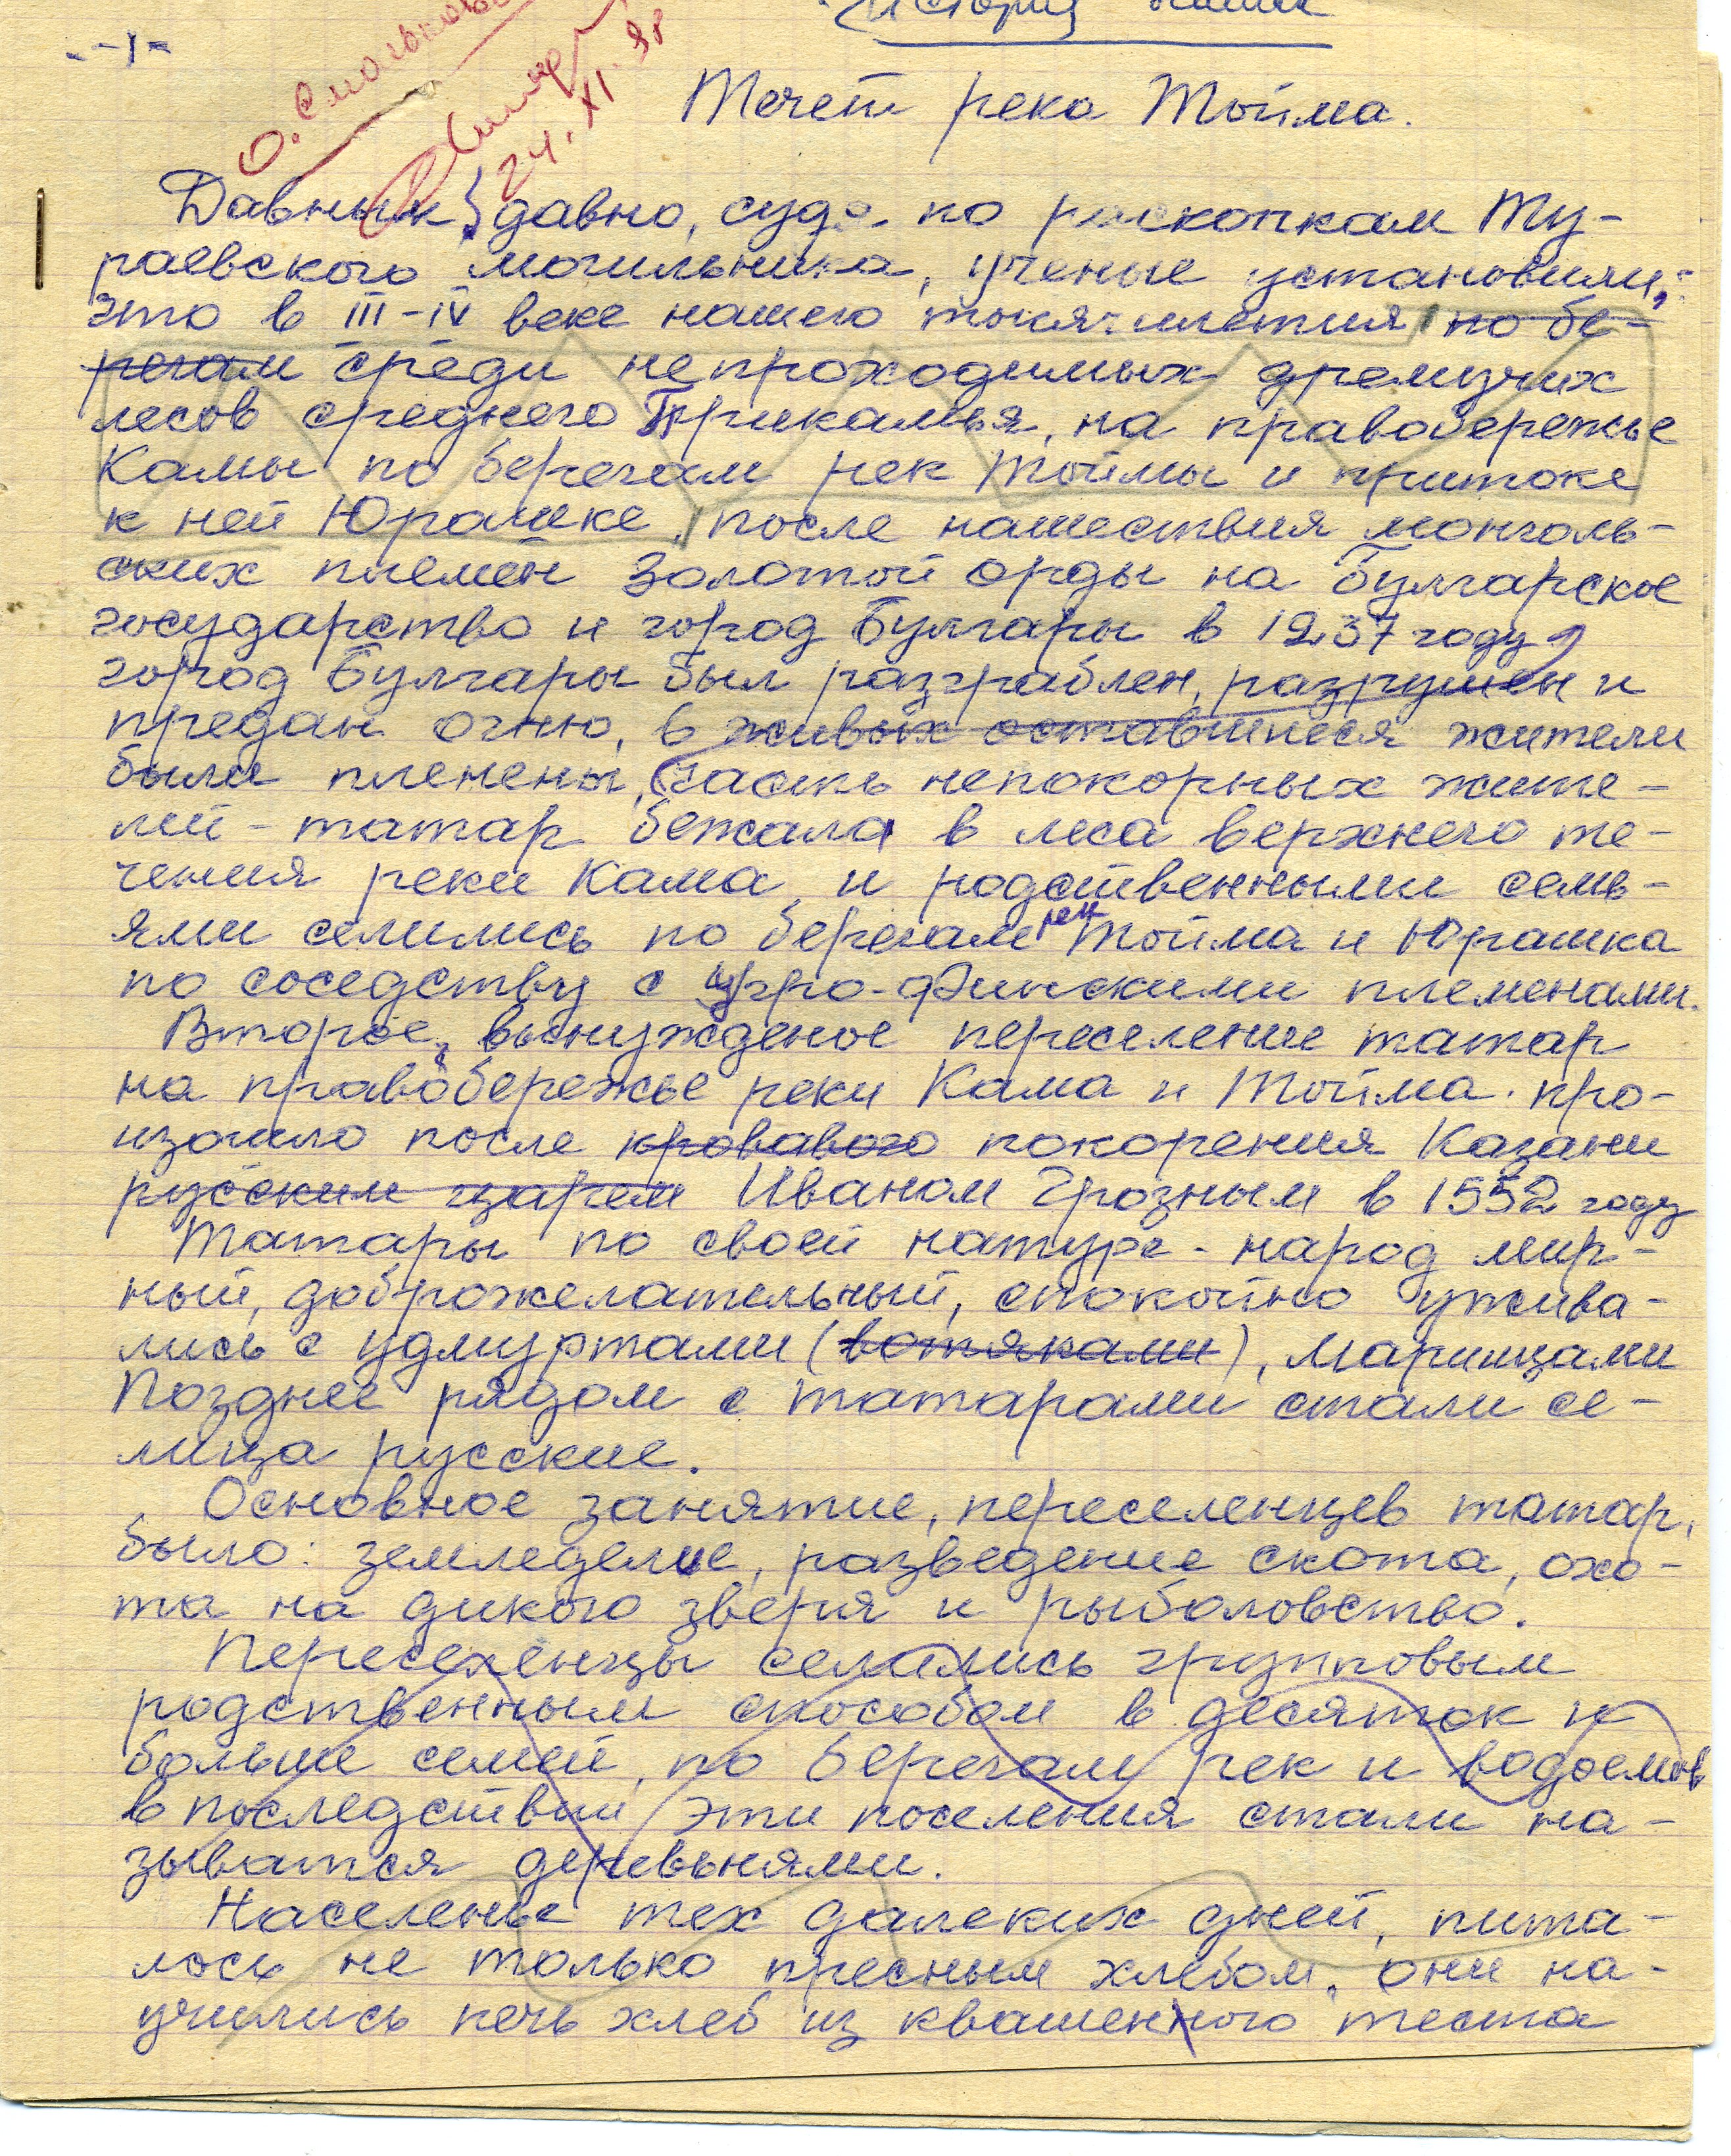 История наша
-1-
О. Смольков
24.XI.98
Течет река Тойма.
Давным давно, судя по раскопкам Ту-
раевского могильника, ученые установили,
это в III-IV веке нашего тысячилетия по бе-
регам среди непроходимых дремучих
лесов среднего Прикамья, на правобережье
Камы по берегам рек Тоймы и притоке
к ней Юрашке, после нашествия монголь-
ских племен Золотой орды на Булгарское
государство и город Булгары в 1237 году
город Булгары был разграблен, разрушен и
предан огню, в живых оставшиеся жители
были пленены, часть непокорных жите-
лей - татар бежала в леса верхнего те-
чения реки Кама и родственными семь-
ями селились по берегам рек Тойма и Юрашка
по соседству с Угро-Финскими племенами.
Второе, вынужденое переселение татар
на правобережье реки Кама и Тойма. про-
изошло после кровавого покорения Казани
русским царем Иваном Грозным в 1552 году
Татары по своей натуре - народ мир-
ный, доброжелательный, спокойно ужива-
лись с удмуртами (вотяками), марицами
Позднее рядом с татарами стали се-
лица русские.
Основное занятие, переселенцев татар,
было: земледелие, разведение скота, охо-
та на дикого зверя и рыболовство.
Переселенцы селились групповым
родственным способом в десяток и
больше семей, по берегам рек и водоемов
в последствии эти поселения стали на-
зыватся деревьнями.
Населенье тех далеких дней, пита-
лось не только пресным хлебом, они на-
учились печь хлеб из квашенного теста